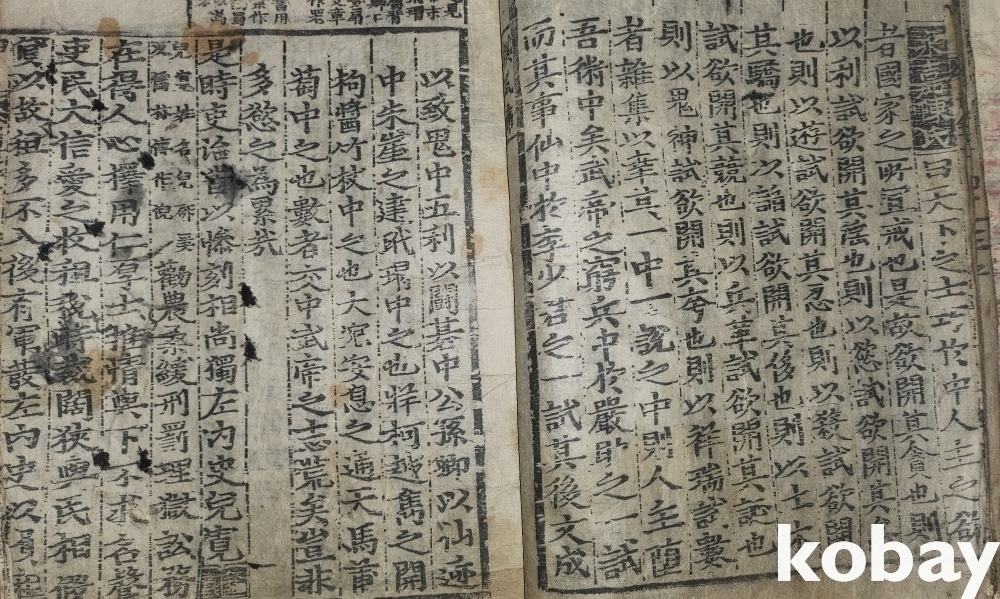 曰天下之士巧於中人主之欲
若國家之所宣戒也是故欲開其貪也則
以利試欲開其淫也則以慾試欲開其
也則以遊試欲開其忍也則以殺試欲開
其驕也則以諂試欲開其侈也則以土
試欲開其競也則以兵革試欲開其誕也
則以鬼神試欲開其夸也則以祥瑞試數
者雜集以萃其一中一說之中則人主墮
吾術中矣武帝之窮兵中於嚴助之一試
而其事仙中於李少君之一試其後文成
以致鬼中五利以鬪棊中公孫卿以仙迹
中朱崖之達玳瑁中之也牂柯越嶲之開
枸醬竹杖中之也大宛安息之通天馬葡
萄中之也數者交中武帝之志荒矣豈非
多慾之為累㢤
是時吏治皆以慘刻相尚獨左內史兒寬
勸農桑緩刑罰理獄訟務
在得人心擇用仁厚士推情與下不求名聲
吏民大信愛之收租稅時裁闊狹與民相假
貸以故租多不入後有軍發左內史以負租
kobay